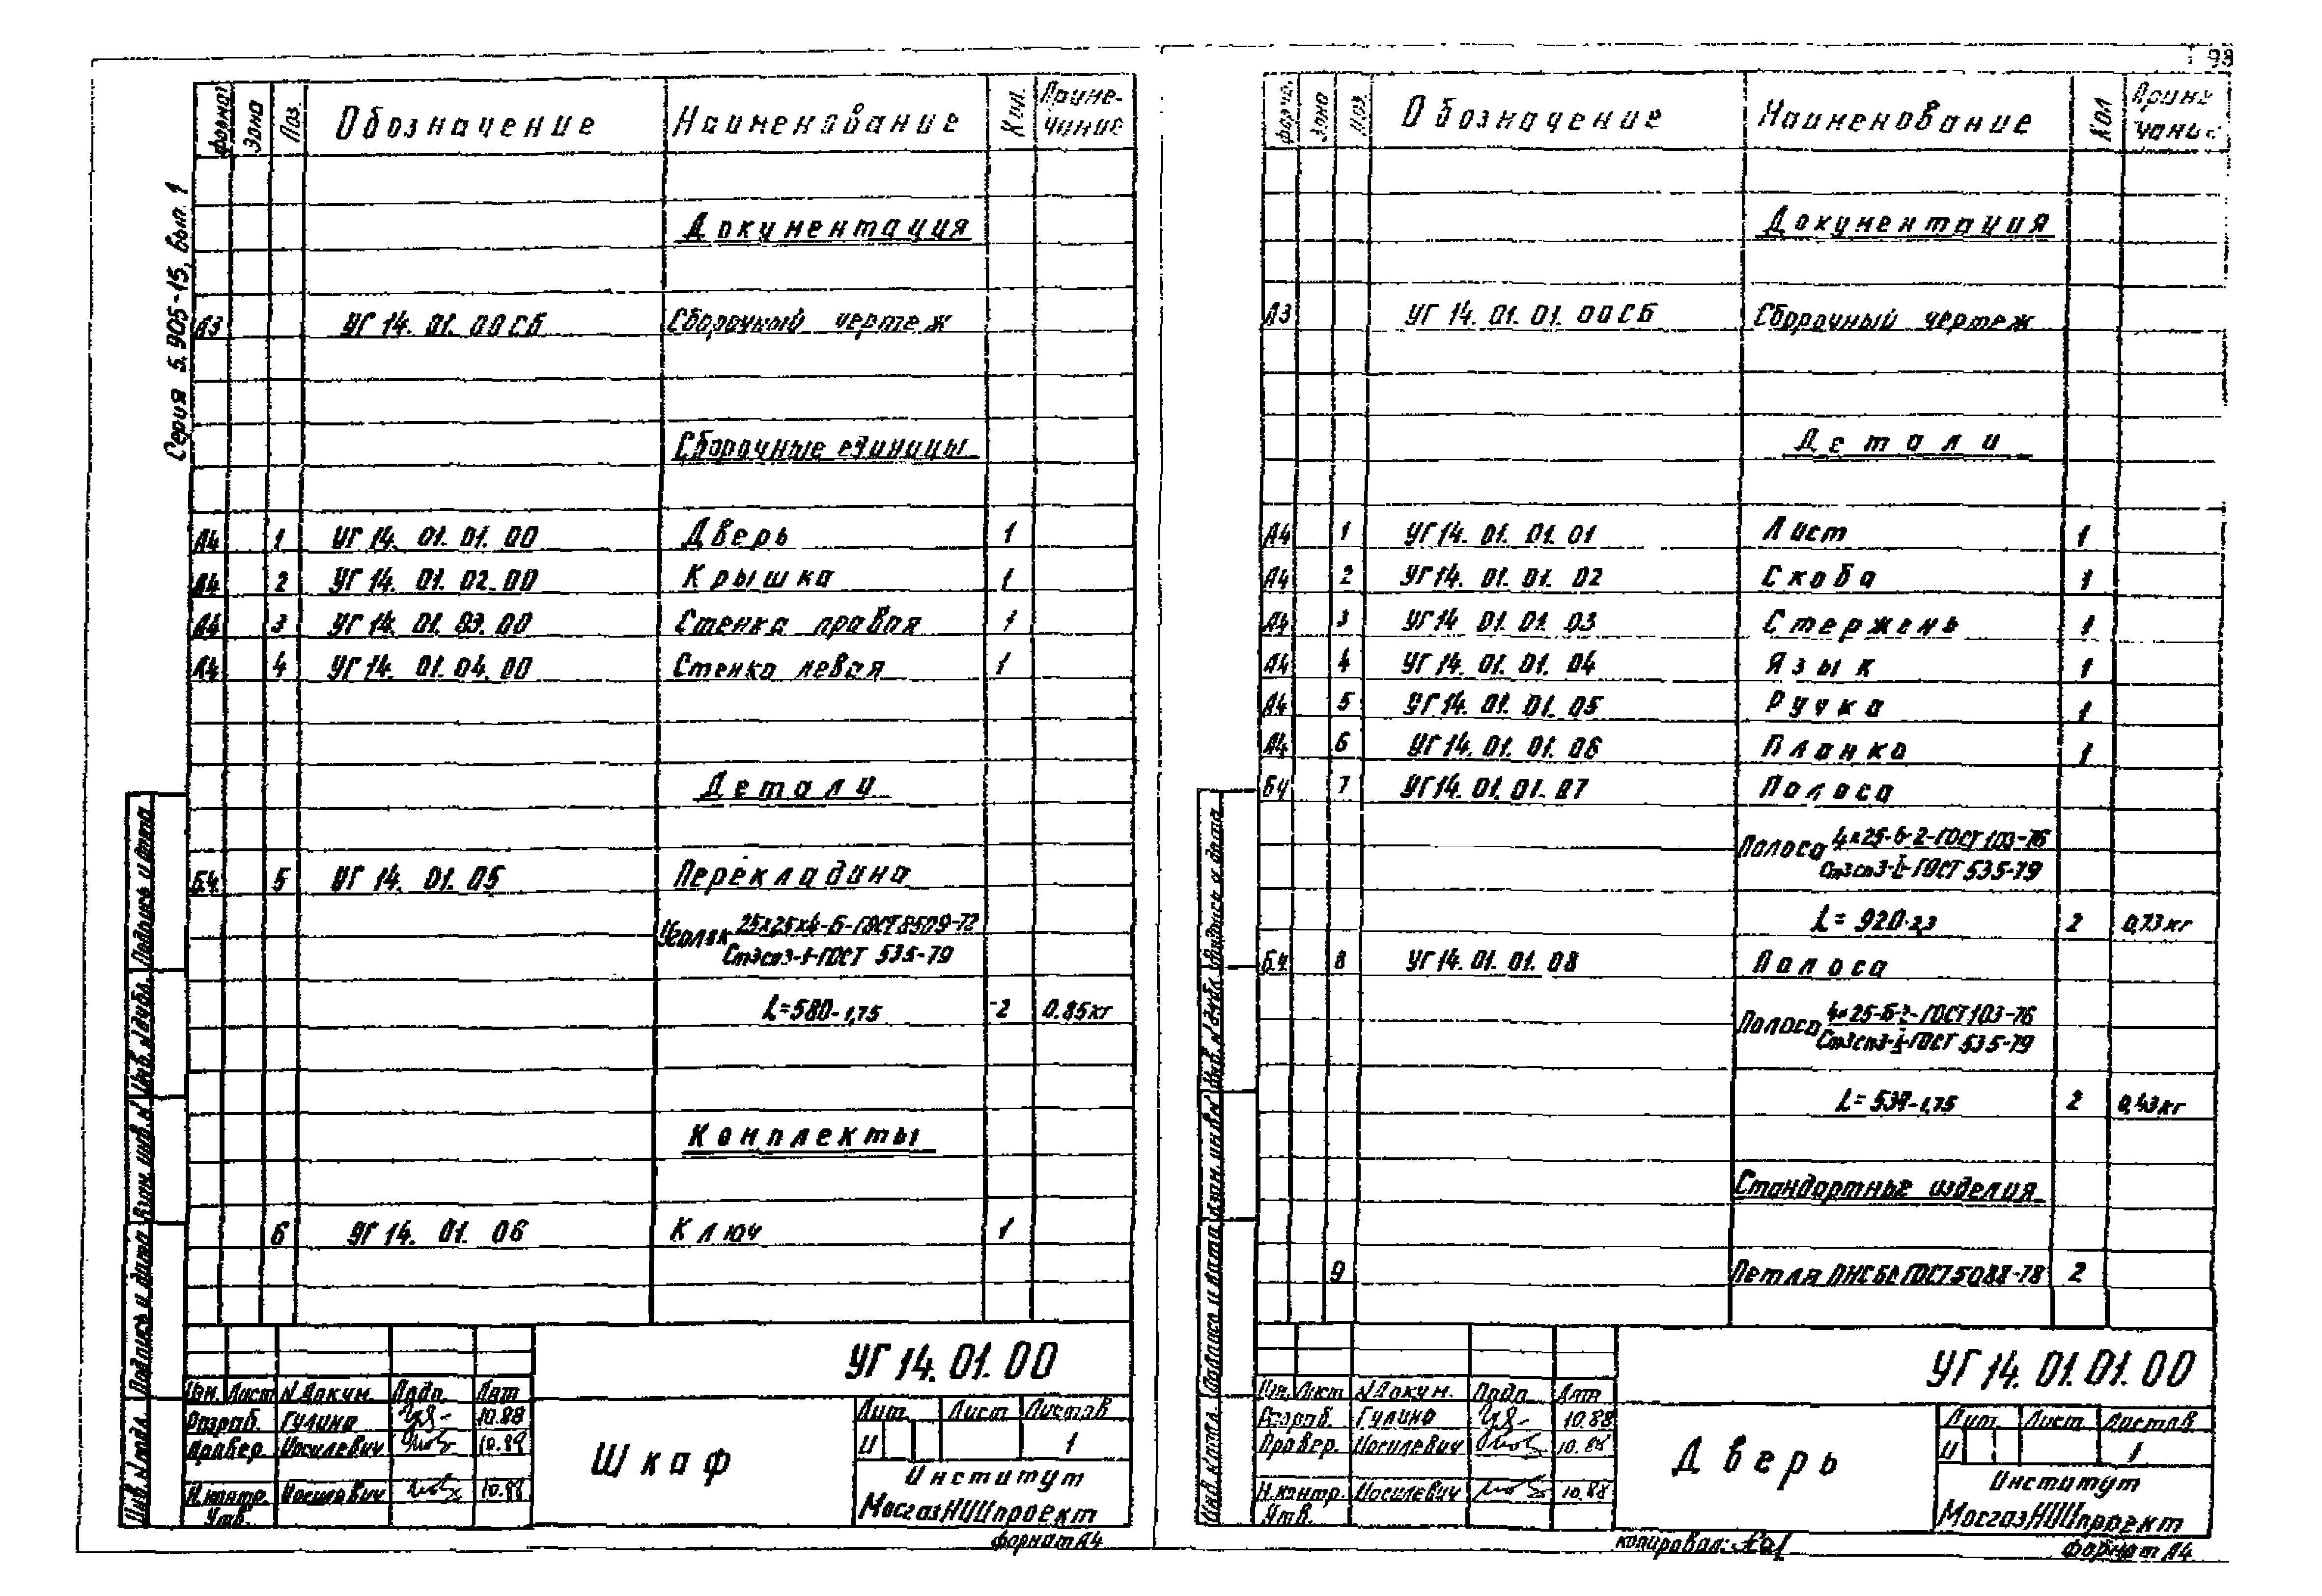 98
Серия 5.905-15, вып. 1
Формат Зона Поз. Обозначение Наименование Кол. Приме-
чание
Документация
А3 УГ 14. 01. 00 СБ Сборочный чертеж
Сборочные единицы
А4 1 УГ 14. 01. 01. 00 Дверь 1
А4 2 УГ 14. 01. 02. 00 Крышка 1
А4 3 УГ 14. 01. 03. 00 Стенка правая 1
А4 4 УГ 14. 01. 04. 00 Стенка левая 1
Детали
Б.Ч. 5 УГ 14. 01. 05 Перекладина
Уголок 25х25х4-Б-ГОСТ 8509-72
Ст3сп3-1-ГОСТ 535-79
L=580-1,75 2 0.85кг
Комплекты
6 УГ 14. 01. 06 Ключ 1
Инв. N подл. Подпись и дата Взам. инв. N Инв. N дубл. Подпись и дата
УГ 14. 01. 00
Изм. Лист N докум. Подп. Дат
Разраб. Гулина 10.88
Провер. Иосилевич 10.89
Н.контр. Иосилевич 10.88
Утв.
Шкаф
Лит. Лист Листов
И 1
Институт
МосгазНИИпроект
формат А4
Зона Поз. Обозначение Наименование Кол Приме
чание
Документация
А3 УГ 14. 01. 01. 00 СБ Сборочный чертеж
Детали
А4 1 УГ 14. 01. 01. 01 Лист 1
А4 2 УГ 14. 01. 01. 02 Скоба 1
А4 3 УГ 14 01. 01. 03 Стержень 1
А4 4 УГ 14. 01. 01. 04 Язык 1
А4 5 УГ 14. 01. 01. 05 Ручка 1
А4 6 УГ 14. 01. 01. 06 Планка 1
БЧ 7 УГ 14. 01. 01. 07 Полоса
Полоса 4х25-Б-2-ГОСТ 103-76
Ст3сп3- -ГОСТ 535-79
L= 920-2,3 2 0,73кг
Б.Ч. 8 УГ 14. 01. 01. 08 Полоса
Полоса 4х25-Б-2-ГОСТ 103-76
Ст3сп3- -ГОСТ 535-79
L= 539-1,75 2 0,43кг
Стандартные изделия
9 Петля ГОСТ 5088-78 2
Инв. N подл. Подпись и дата Взам. инв. N Инв. N дубл. Подпись и дата
УГ 14. 01. 01. 00
Изм. Лист N докум. Подп. Дат
Разраб. Гулина 10.88
Провер. Иосилевич 10.88
Н.контр Иосилевич 10.88
Утв.
Дверь
Лит. Лист Листов
И 1
Институт
МосгазНИИпроект
копировал:
формат А4